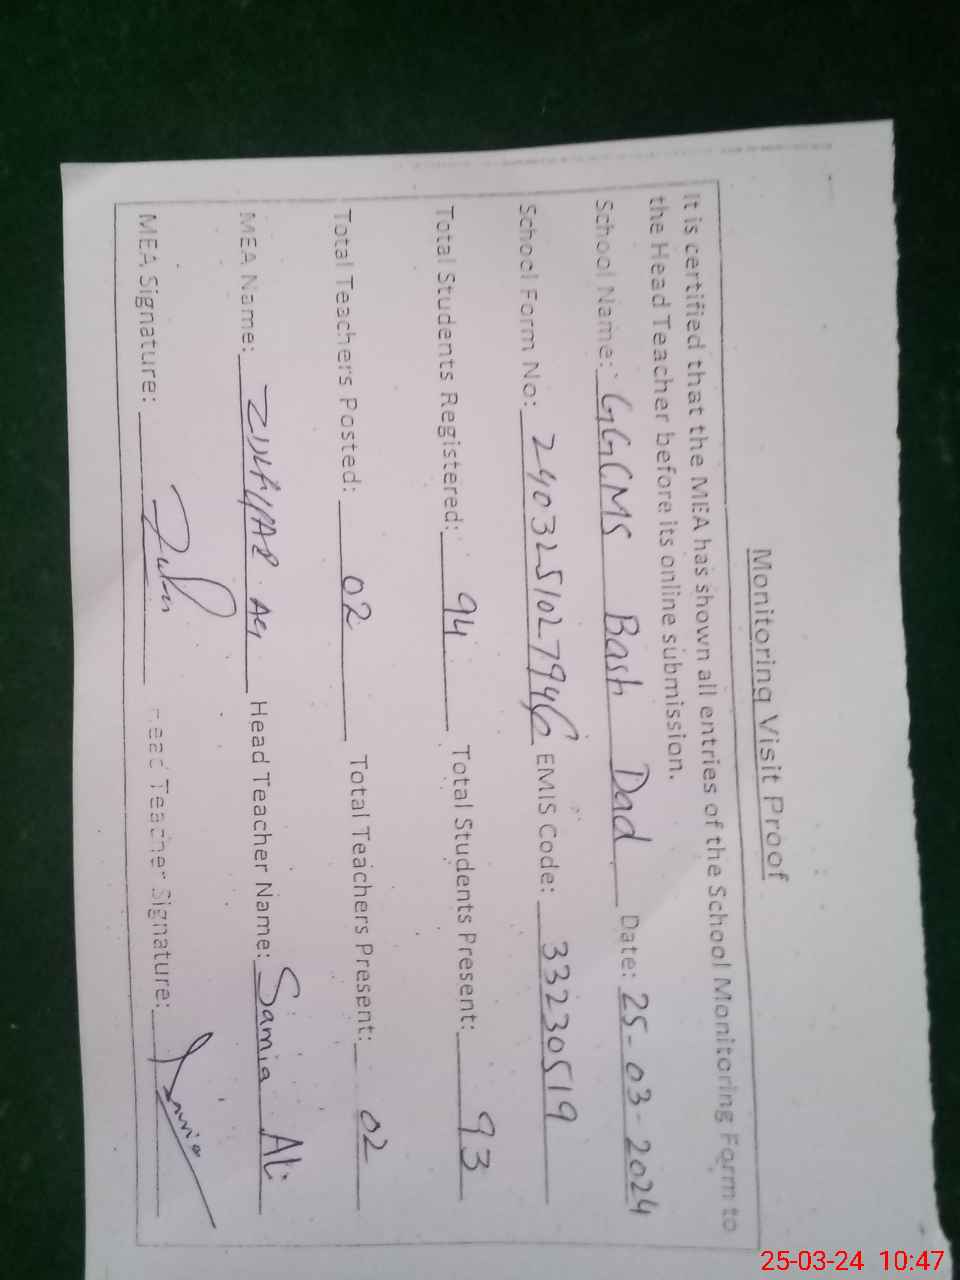 Monitoring Visit Proof
It is certified that the MEA has shown all entries of the School Monitoring Form to
the Head Teacher before its online submission.
School Name: GGCMS Bash Dad Date: 25-03-2024
School Form No: 2403251027946 EMIS Code: 33230519
Total Students Registered: 94 Total Students Present: 93
Total Teachers Posted: 02 Total Teachers Present: 02
MEA Name: Head Teacher Name: Samia Ali
MEA Signature: Head Teacher Signature: Samia
25-03-24 10:47